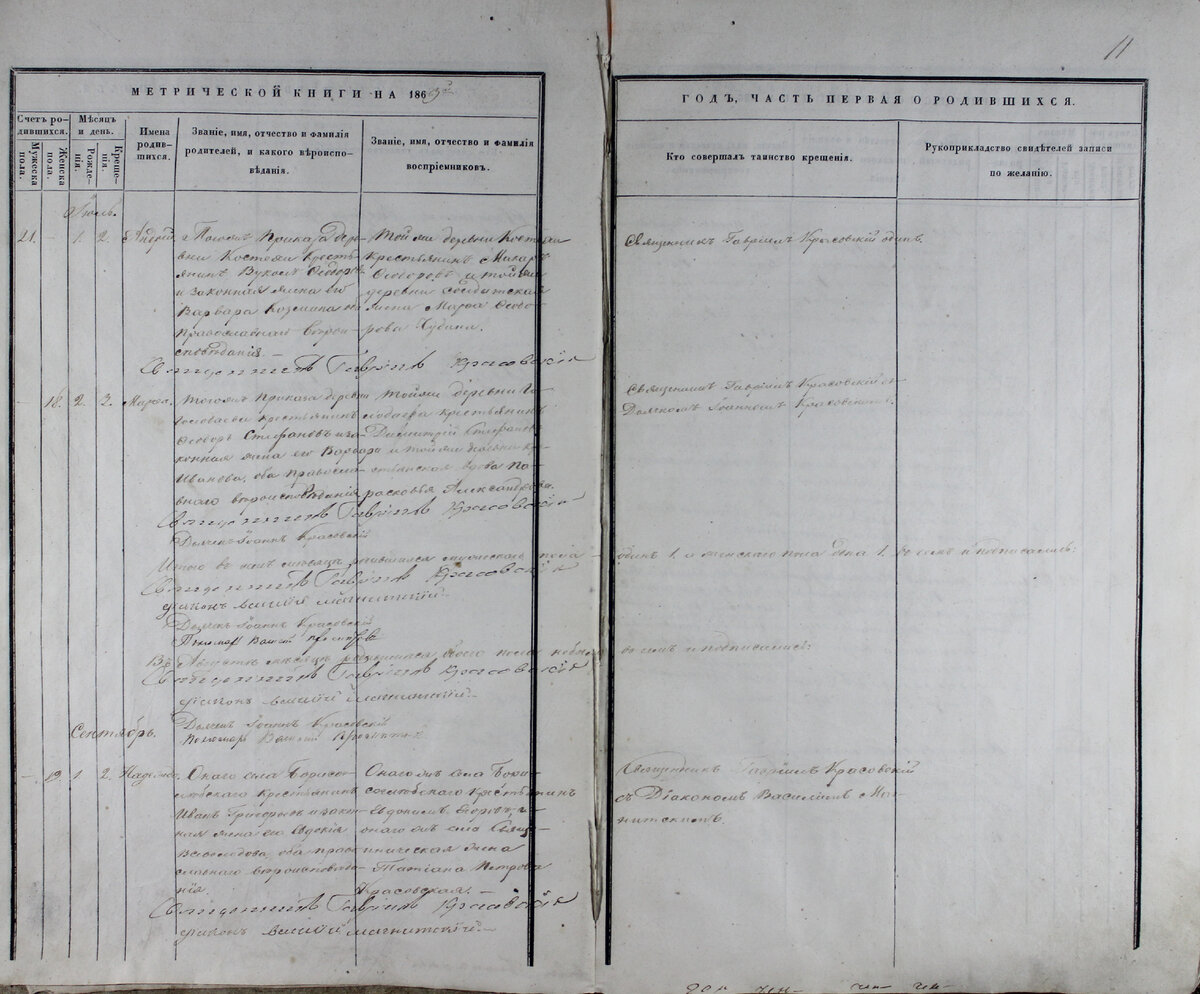 11
МЕТРИЧЕСКОЙ КНИГИ НА 1863й
ГОДЪ, ЧАСТЬ ПЕРВАЯ О РОДИВШИХСЯ.
Счетъ родившихся.
Мужеска пола.
Женска пола.
Мѣсяцъ и день.
Рожденія.
Крещенія.
Имена родившихся.
Званіе, имя, отчество и фамилія
родителей, и какого вѣроисповѣданія.
Званіе, имя, отчество и фамилія
воспріемниковъ.
Кто совершалъ таинство крещенія.
Рукоприкладство свидѣтелей записи
по желанію.
Іюль.
21. – 1. 2. Андрей
Тогожъ Приказа дере-
вни Костяжи Кресть-
янинъ Вуколъ Ѳедоровъ
и законная жена его
Варвара Козмина
православнаго вѣрои-
сповѣданія. –
Той же деревни
Крестьянинъ Макаръ
Ѳедоровъ и тойже
деревни солдатская
жена Марѳа Ѳедо-
рова
Священникъ Гавріилъ Красовскій одинъ.
Священникъ Гавріилъ Красовскій
– 18. 2. 3. Марѳа.
Тогожъ Приказа деревни
крестьянинъ
Ѳедоръ Стефановъ и за-
конная жена его Варвара
Иванова, оба правосла-
внаго вѣроисповѣданія
Тойже деревни Го-
лодаева крестьянинъ
Димитрій Стефановъ
и тойже деревни кре-
стьянская вдова Па-
расковья Александрова.
Священникъ Гавріилъ Красовскій съ
Дьячкомъ Іоанномъ Красовскимъ.
Священникъ Гавріилъ Красовскій
Дьячекъ Іоаннъ Красовскій
Итого въ семъ мѣсяцѣ родившихся мужескаго пола – одинъ 1. и женскаго пола одна 1. въ семъ и подписались:
Священникъ Гавріилъ Красовскій
Діаконъ Василій Магнитскій. –
Дьячекъ Іоаннъ Красовскій
Пономарь Василій
Въ Августѣ мѣсяцѣ родившихся обоего пола небыло въ семъ и подписались:
Священникъ Гавріилъ Красовскій
Діаконъ Василій Магнитскій. –
Дьячекъ Іоаннъ Красовскій
Пономарь Василій
Сентябрь.
– 19. 1. 2. Надежда.
Онаго села Борисо-
глѣбскаго Крестьянинъ
Иванъ Григорьевъ и закон-
ная жена его Евдокія
Всеволодова, оба право-
славнаго вѣроисповѣда-
нія.
Онаго жъ села Бори-
соглѣбскаго Крестьянинъ
Евдокимъ Егоровъ, и
онаго жъ села Свяще-
нническая жена
Татіана Петрова
Красовская. –
Священникъ Гавріилъ Красовскій
съ Діакономъ Василіемъ Маг-
нитскимъ.
Священникъ Гавріилъ Красовскій
Діаконъ Василій Магнитскій. –